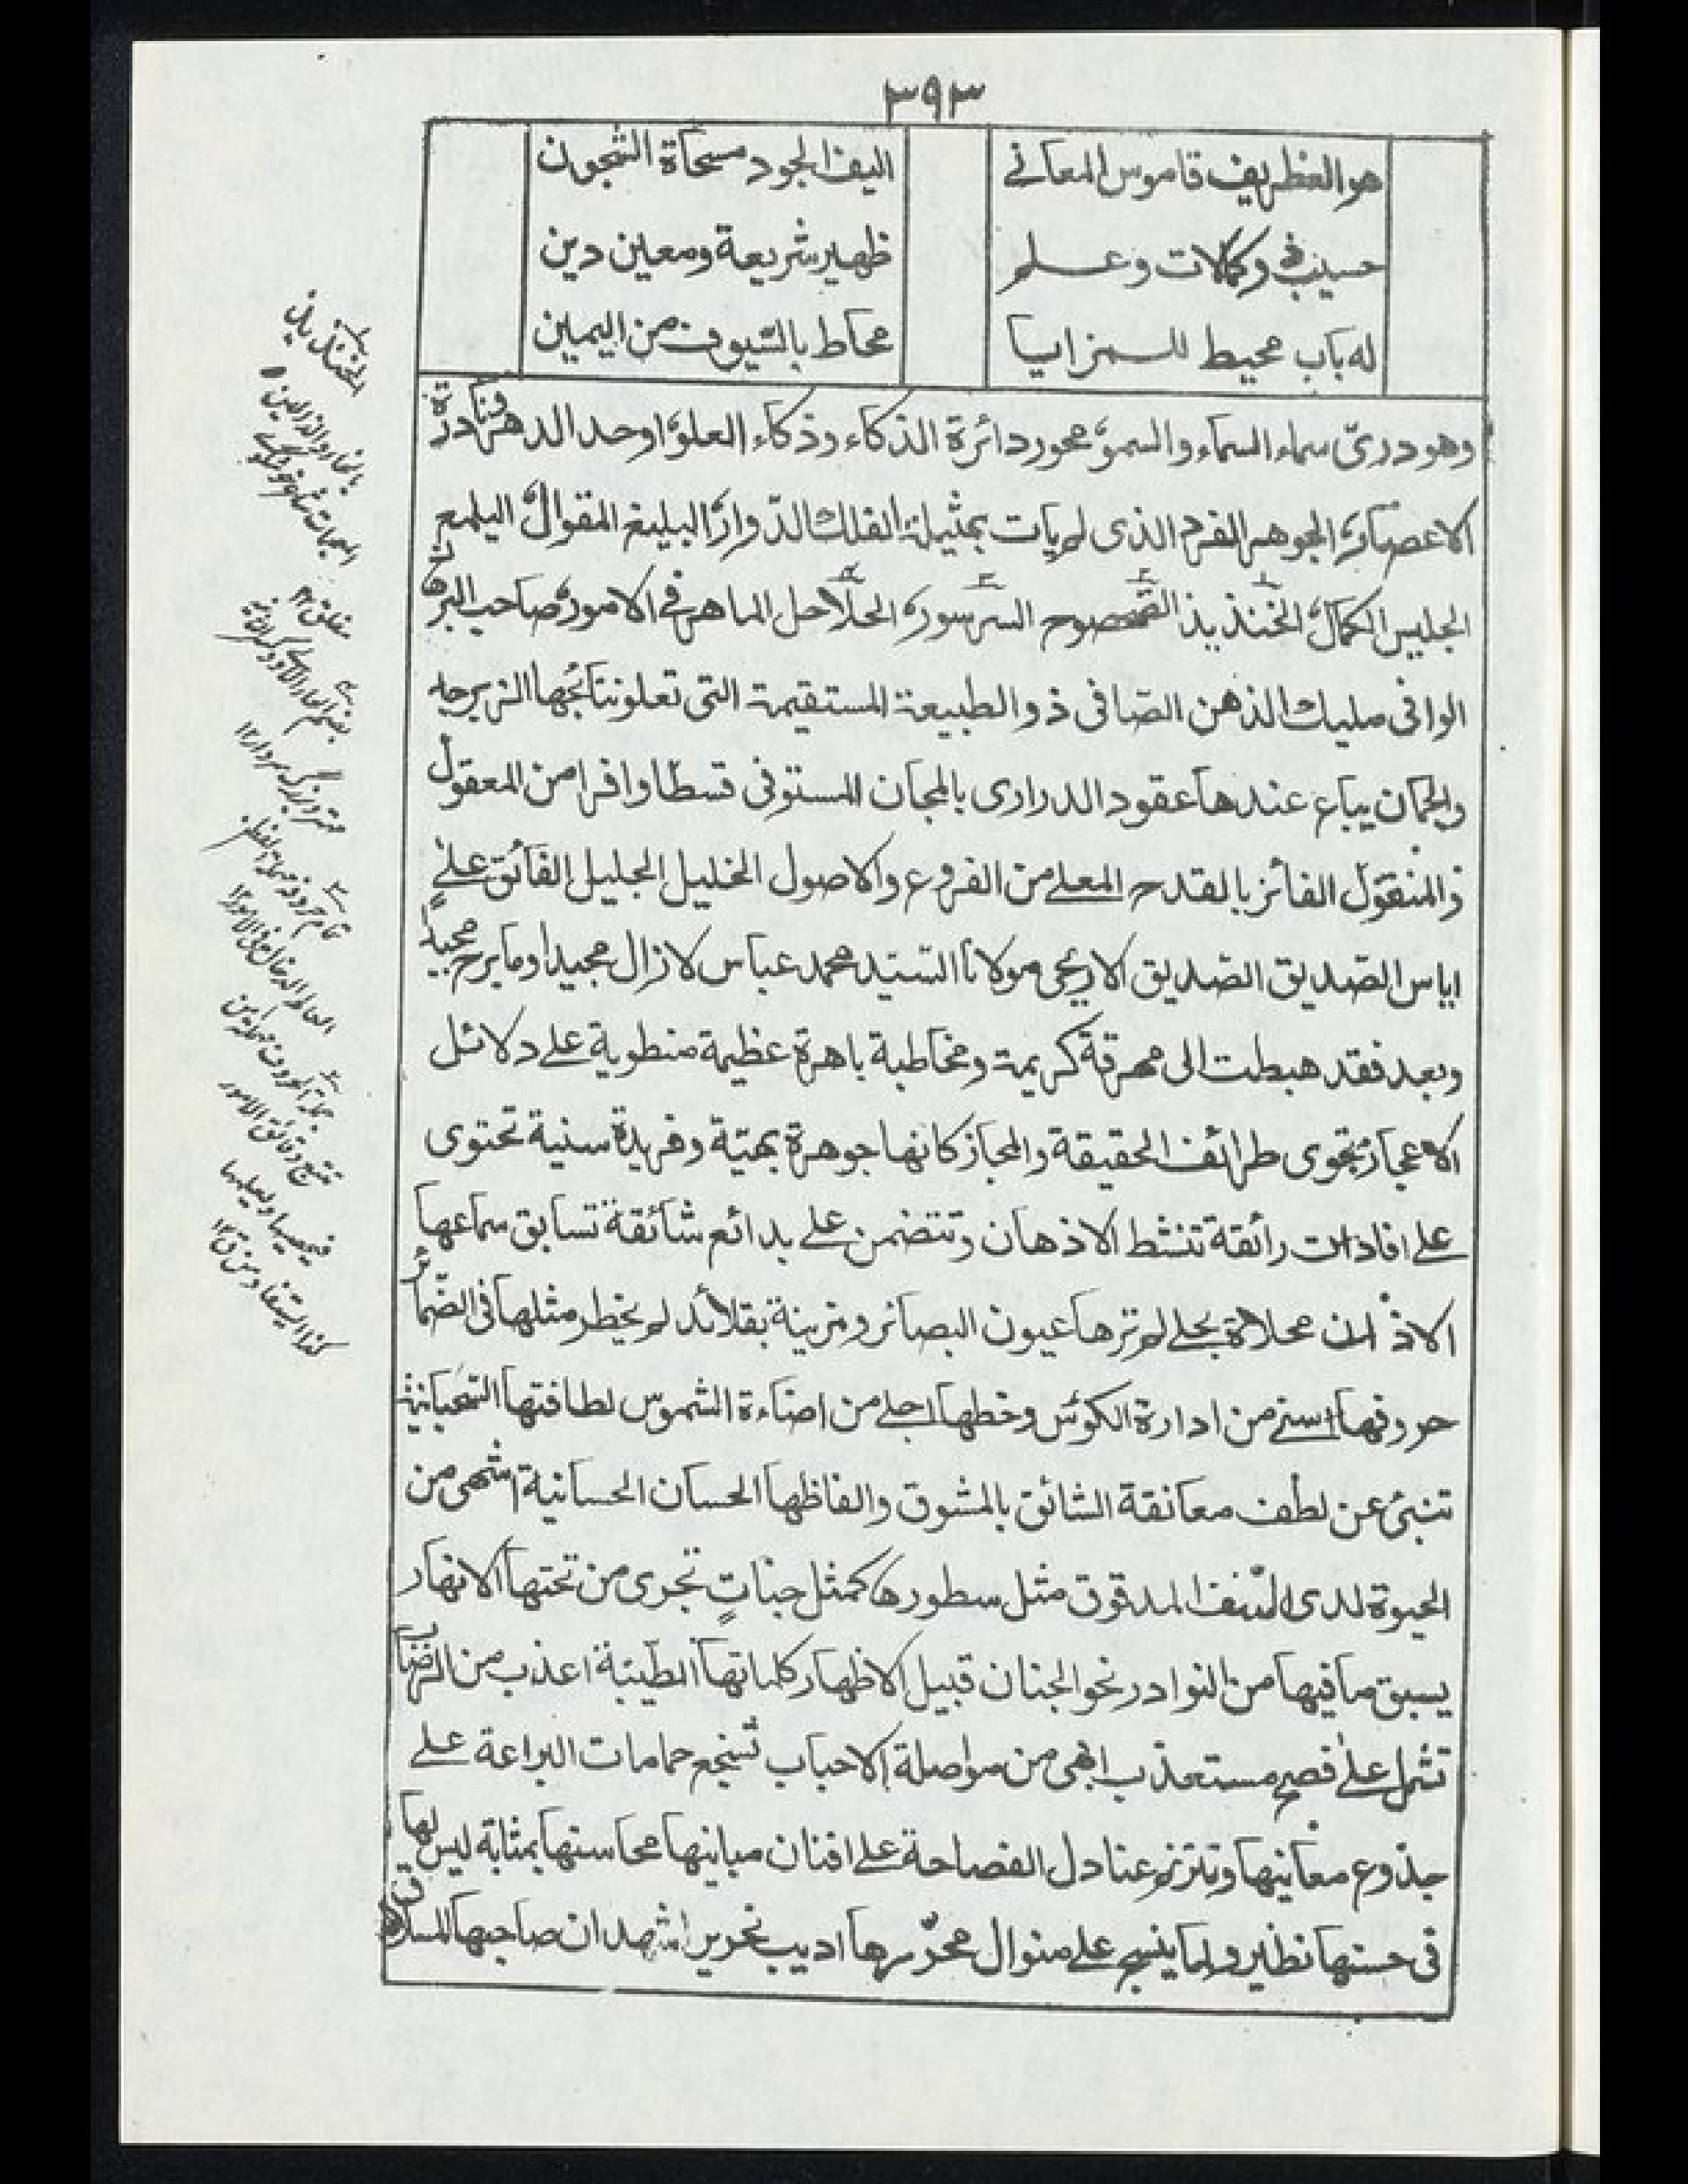 ٣٩٣
هو الغطريف قاموس المعاني
اليف الجود مسحاة الشجون
حسيب في وكمالات وعلم
ظهير شريعة ومعين دين
له باب محيط للمزايا
محاط بالسيوف من اليمين
وهو درىّ سماء السماء والسموّ محور دائرة الذكاء وذكاء العلوّ اوحد الدهر نادرة
الاعصار الجوهر الفرد الذى لم يات بمثيله الفلك الدّوار البليغ المقوال اليلمع
الجليس الكمال الخنذيذ الصمصوح السرسور الحلاحل الماهر فى الامور صاحب البرهان
الوافى مليك الذهن الصافى ذو الطبيعة المستقيمة التى تعلو نتائجها الزبرجد
والجمان يباع عندها عقود الدرارى بالمجان المستوفى قسطا وافرا من المعقول
والمنقول الفائز بالقدح المعلى من الفروع والاصول الخليل الجليل الفائق على
اياس الصديق الصديق الاريحى مولانا السيّد محمد عباس لازال مجيدا وما برح مجيبا
وبعد فقد هبطت الى مهرقة كريمة ومخاطبة باهرة عظيمة منطوية على دلائل
الاعجاز تحوى طرائف الحقيقة والمجاز كانها جوهرة بهيّة وفريدة سنية تحتوى
على افادات رائقة تنشط الاذهان وتتضمن على بدائع شائقة تسابق سماعها
الاذان محلاة بحلى لم ترها عيون البصائر ومزينة بقلائد لم يخطر مثلها فى الضمائر
حروفها اسنى من ادارة الكوئس وخطها اجلى من اضاءة الشموس لطافتها السحبانية
تنبئ عن لطف معانقة الشائق بالمشوق والفاظها الحسان الحسانية اشهى من
الحيوة لدى الدنف المدقوق مثل سطورها كمثل جنات تجرى من تحتها الانهار
يسبق ما فيها من النوادر نحو الجنان قبيل الاظهار كلماتها الطيّبة اعذب من الرضاب
تشمل على فصيح مستعذب ابهى من مواصلة الاحباب تسجع حمامات البراعة على
جذوع معانيها وتترنم عنادل الفصاحة على افنان مبانيها محاسنها بمثابة ليس لها
فى حسنها نظير ولما ينسج على منوال محرّرها اديب نحرير اشهد ان صاحبها